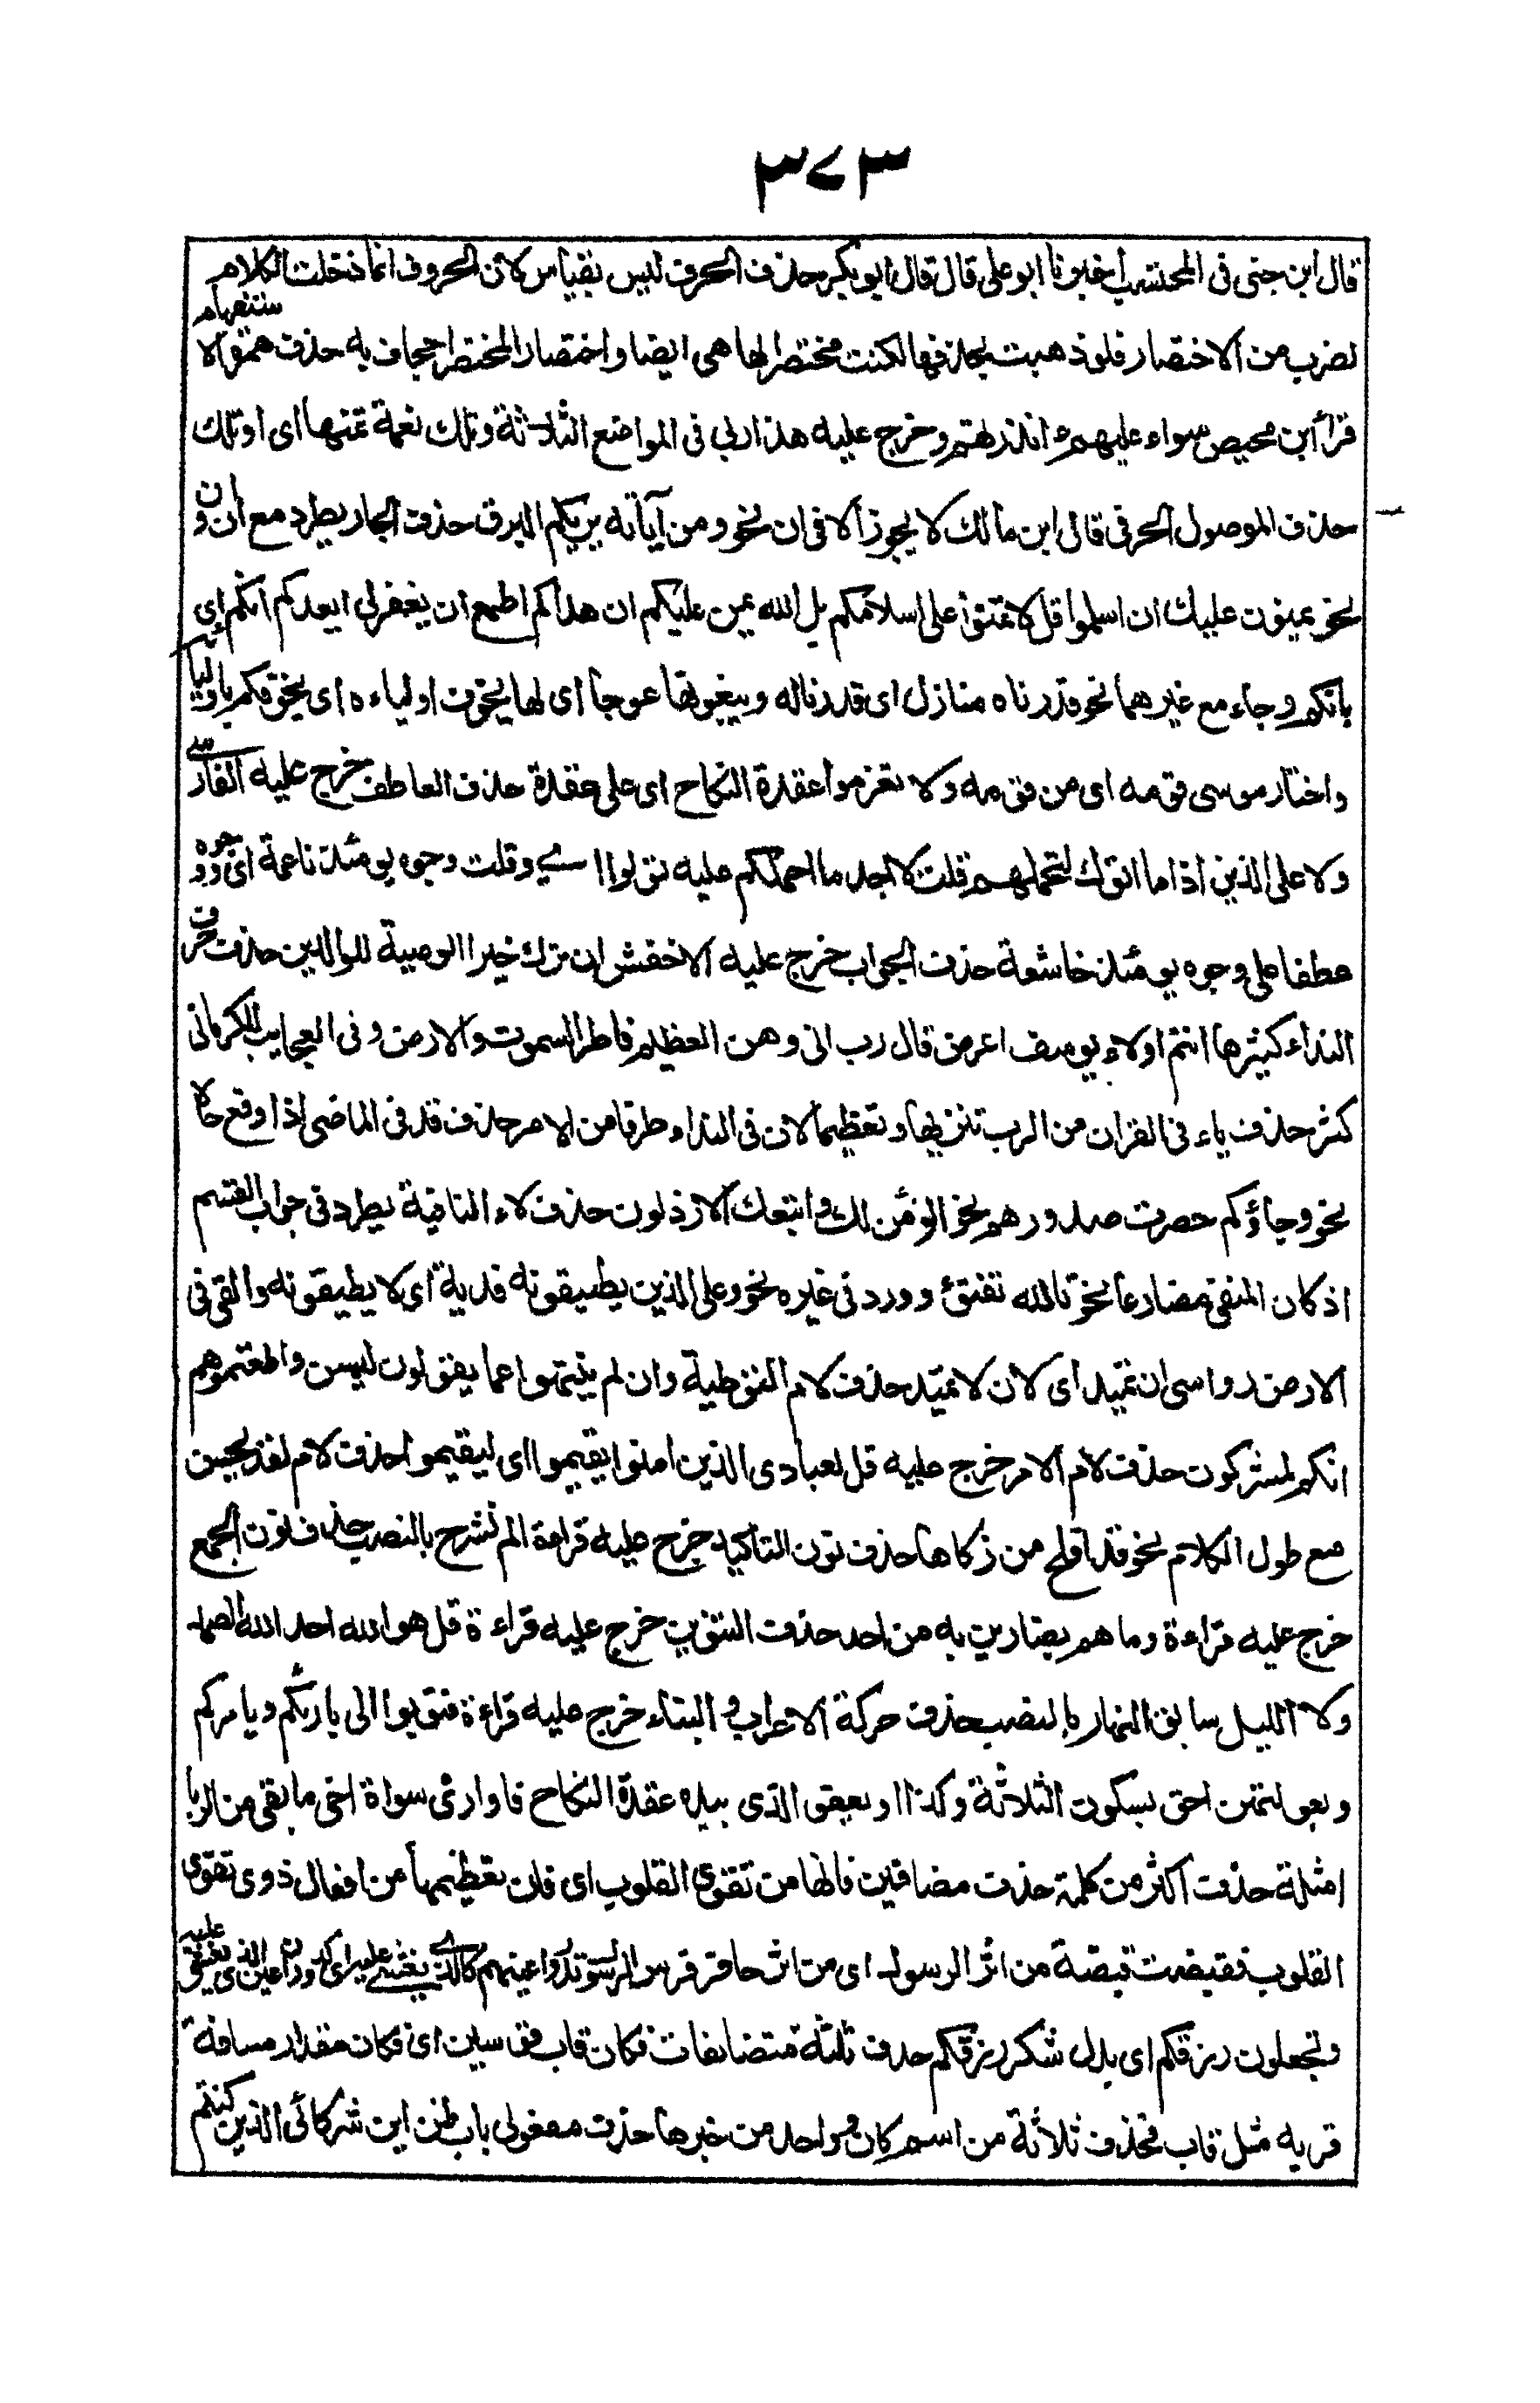 ٣٧٣
قال ابن جنى فى المحتسب أخبرنا ابو على قال قال ابو بكر حذف الحرف ليس بقياس لان الحروف انما دخلت الكلام
لضرب من الاختصار فلو ذهبت بحذفها لكنت مختصرا لها هى ايضا و اختصار المختصر اجحاف به حذف همزة الاستفهام
قرأ ابن محيصن سواء عليهم ءانذرتهم و خرج عليه هذا ربى فى المواضع الثلاثة وتلك نعمة تمنها اى او تلك
حذف الموصول الحرفى قال ابن مالك لا يجوز الا فى ان نحو و من آياته يريكم البرق حذف الجار يطرد مع أن و ان
نحو يمنون عليك ان اسلموا قل لا تمنوا على اسلامكم بل الله يمن عليكم ان هداكم اطمع ان يغفر لى ايعدكم انكم اى
بانكم وجاء مع غيرهما نحو قدرناه منازل اى قدرنا له ويبغونها عوجا اى لها يخوف اولياءه اى يخوفكم باوليائه
واختار موسى قومه اى من قومه ولا تعزموا عقدة النكاح اى على عقدة حذف العاطف خرج عليه الفارسى
ولا على الذين اذا ما اتوك لتحملهم قلت لا اجد ما احملكم عليه تولوا اے وقلت وجوه يومئذ ناعمة اى و وجوه
عطفا على وجوه يومئذ خاشعة حذف الجواب خرج عليه الاخفش ان ترك خيرا الوصية للوالدين حذف حرف
النداء كثير ها انتم اولاء يوسف اعرض قال رب انى وهن العظم فاطر السموت والارض و فى العجايب للكرمانى
كثر حذف ياء فى القران من الرب تنزيها و تعظيما لان فى النداء طرفا من الامر حذف قد فى الماضى اذا وقع حالا
نحو وجاؤكم حصرت صدورهم نحو انؤمن لك واتبعك الارذلون حذف لاء النافية يطرد فى جواب القسم
اذ كان المنفى مضارعا نحو تالله تفتؤ و ورد فى غيره نحو وعلى الذين يطيقونه فدية اى لا يطيقونه والقى فى
الارض رواسى ان تميد اى لان لا تميد حذف لام التوطية وان لم ينتهوا عما يقولون ليمسن و اطعتموهم
انكم لمشركون حذف لام الامر خرج عليه قل لعبادى الذين امنوا يقيموا اى ليقيموا حذف لام لقد يحسن
مع طول الكلام نحو قد افلح من زكاها حذف نون التاكيد خرج عليه قراءة الم نشرح بالنصب حذف نون الجمع
خرج عليه قراءة وما هم بضارين به من احد حذف التنوين خرج عليه قراءة قل هو الله احد الله الصمد
ولا الليل سابق النهار بالنصب حذف حركة الاعراب و البناء خرج عليه قراءة فتوبوا الى بارئكم و يامركم
و بعولتهن احق بسكون الثلاثة وكذا او يعفو الذى بيده عقدة النكاح فاوارى سواة اخى ما بقى من الربا
امثلة حذف اكثر من كلمة حذف مضافين فانها من تقوى القلوب اى فان تعظيمها من افعال ذوى تقوى
القلوب فقبضت قبضة من اثر الرسول اى من اثر حافر فرس الرسول تدور اعينهم كالذى يغشى عليه اى كدوران عين الذى يغشى عليه
وتجعلون رزقكم اى بدل شكر رزقكم حذف ثلثة متضايفات فكان قاب قوسين اى فكان مقدار مسافة
قربه مثل قاب فحذف ثلاثة من اسم كان و واحد من خبرها حذف مفعولى باب ظن اين شركائى الذين كنتم